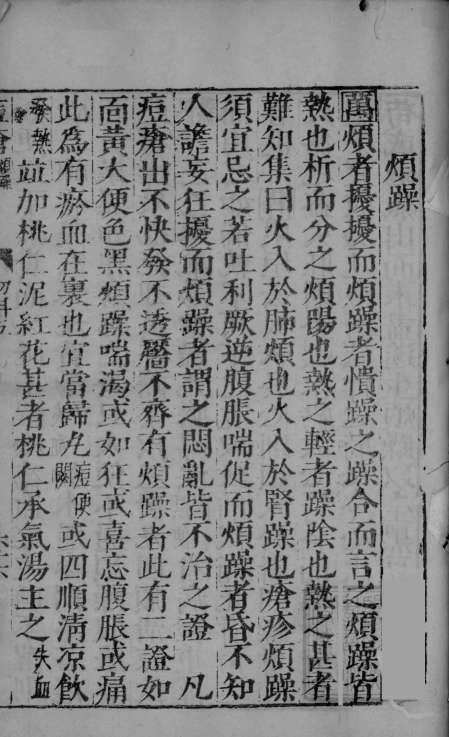 煩躁
萬煩者擾擾而煩躁者憤躁之躁合而言之煩躁皆
熱也析而分之煩陽也熱之輕者躁陰也熱之甚者
難知集曰火入於肺煩也火入於腎躁也瘡疹煩躁
須宜忌之若吐利厥逆腹脹喘促而煩躁者昏不知
人譫妄狂擾而煩躁者謂之悶亂皆不治之證 凡
痘瘡出不快發不透靨不齊有煩躁者此有二證如
面黃大便色黑煩躁喘渴或如狂或喜忘腹脹或痛
此為有瘀血在裏也宜當歸丸痘便閉或四順清凉飲
發熱並加桃仁泥紅花甚者桃仁承氣湯主之失血